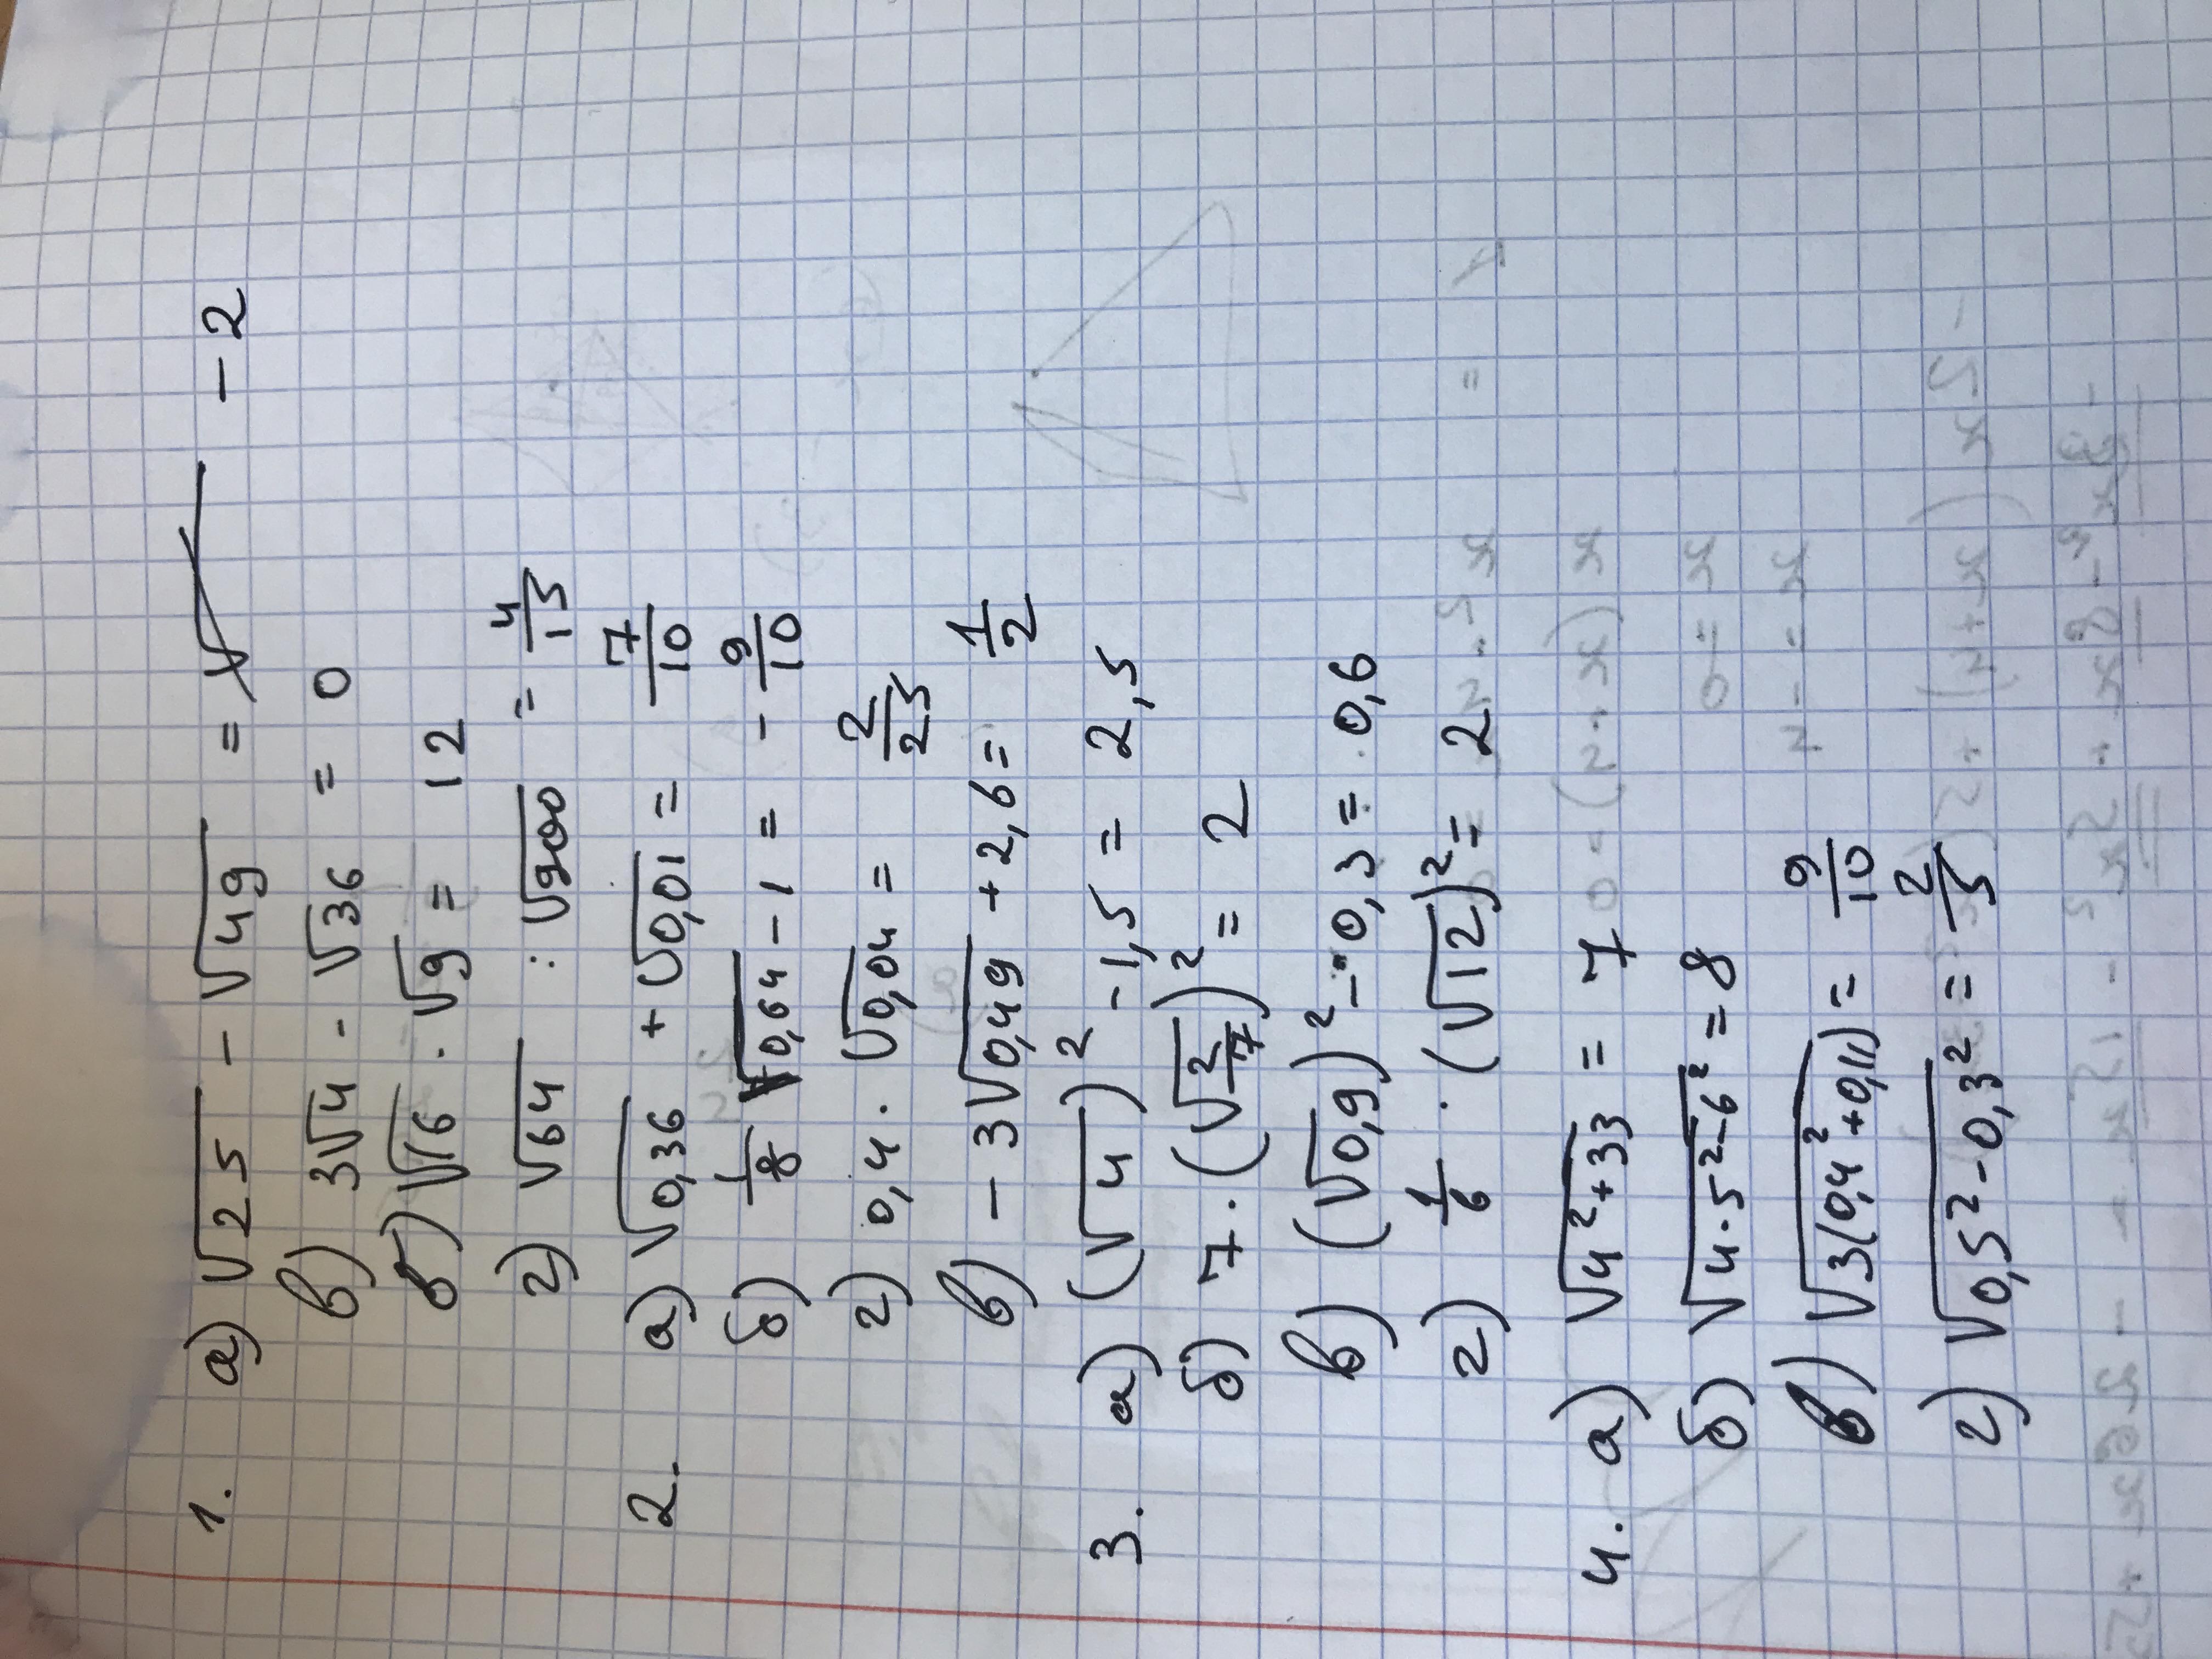 1. а) √25 - √49 = -2
в) 3√4 - √36 = 0
б) √16 · √9 = 12
г) √64 : √900 = 4/15
2. а) √0,36 + √0,01 = 7/10
б) 1/8 √0,64 - 1 = - 9/10
г) 0,4 · √0,04 = 2/25
в) - 3√0,49 + 2,6 = 1/2
3. а) (√4)² - 1,5 = 2,5
б) 7 · (√2/7)² = 2
в) (√0,9)² - 0,3 = 0,6
г) 1/6 · (√12)² = 2
4. а) √4² + 33 = 7
б) √4 · 5² - 6² = 8
в) √3(0,4² + 0,11) = 9/10
г) √0,5² - 0,3² = 2/5